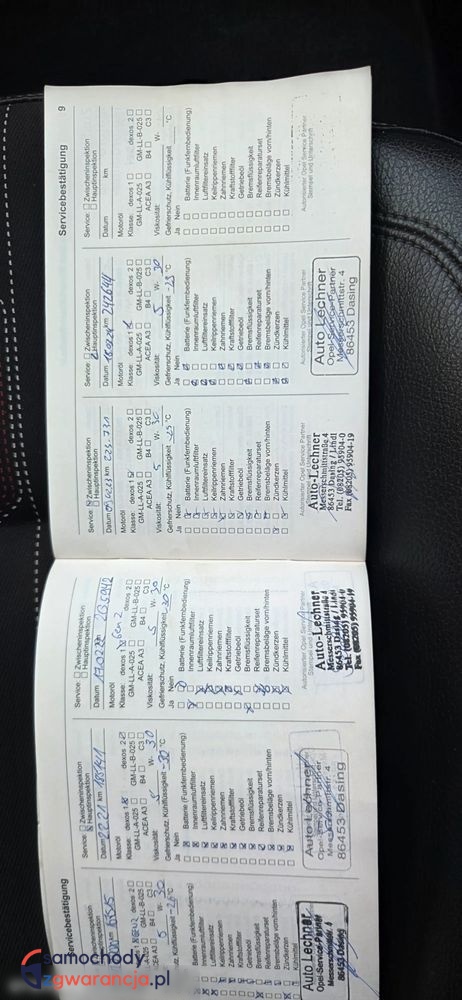 Servicebestätigung
W- 30
Ja Nein
Batterie (Funkfernbedienung)
Innenraumluftfilter
Luftfiltereinsatz
Keilrippenriemen
Zahnriemen
Kraftstofffilter
Getriebeöl
Bremsflüssigkeit
Reifenreparaturset
Bremsbeläge vorn/hinten
Zündkerzen
Kühlmittel
Auto Lechner
Opel-Service-Partner
Messerschmittstr. 4
86453 Dasing
Service: Zwischeninspektion
Hauptinspektion
Datum km
Motoröl
Klasse: dexos 1 dexos 2
GM-LL-A-025 GM-LL-B-025
ACEA A3 B4 C3
Viskosität: 5 W- 30
Gefrierschutz, Kühlflüssigkeit -30 °C
Ja Nein
Batterie (Funkfernbedienung)
Innenraumluftfilter
Luftfiltereinsatz
Keilrippenriemen
Zahnriemen
Kraftstofffilter
Getriebeöl
Bremsflüssigkeit
Reifenreparaturset
Bremsbeläge vorn/hinten
Zündkerzen
Kühlmittel
Auto Lechner
Opel-Service-Partner
Messerschmittstr. 4
86453 Dasing
Service: Zwischeninspektion
Hauptinspektion
Datum 17.02.22 km 205940
Motoröl
Klasse: dexos 1 dexos 2
GM-LL-A-025 GM-LL-B-025
ACEA A3 B4 C3
Viskosität: 5 W- 30
Gefrierschutz, Kühlflüssigkeit -30 °C
Ja Nein
Batterie (Funkfernbedienung)
Innenraumluftfilter
Luftfiltereinsatz
Keilrippenriemen
Zahnriemen
Kraftstofffilter
Getriebeöl
Bremsflüssigkeit
Reifenreparaturset
Bremsbeläge vorn/hinten
Zündkerzen
Kühlmittel
Auto-Lechner
Messerschmittstraße 4
86453 Dasing / Lfndl
Tel. (08205) 95904-0
Fax (08205) 95904-19
Servicebestätigung 9
Service: Zwischeninspektion
Hauptinspektion
Datum km 223.731
Motoröl
Klasse: dexos 1 dexos 2
GM-LL-A-025 GM-LL-B-025
ACEA A3 B4 C3
Viskosität: 5 W- 30
Gefrierschutz, Kühlflüssigkeit -25 °C
Ja Nein
Batterie (Funkfernbedienung)
Innenraumluftfilter
Luftfiltereinsatz
Keilrippenriemen
Zahnriemen
Kraftstofffilter
Getriebeöl
Bremsflüssigkeit
Reifenreparaturset
Bremsbeläge vorn/hinten
Zündkerzen
Kühlmittel
Autorisierter Opel Service Partner
Auto-Lechner
Messerschmittstraße 4
86453 Dasing / Lfndl
Tel. (08205) 95904-0
Fax (08205) 95904-19
Service: Zwischeninspektion
Hauptinspektion
Datum km 242644
Motoröl
Klasse: dexos 1 dexos 2
GM-LL-A-025 GM-LL-B-025
ACEA A3 B4 C3
Viskosität: 5 W- 30
Gefrierschutz, Kühlflüssigkeit °C
Ja Nein
Batterie (Funkfernbedienung)
Innenraumluftfilter
Luftfiltereinsatz
Keilrippenriemen
Zahnriemen
Kraftstofffilter
Getriebeöl
Bremsflüssigkeit
Reifenreparaturset
Bremsbeläge vorn/hinten
Zündkerzen
Kühlmittel
Autorisierter Opel Service Partner
Auto Lechner
Opel-Service-Partner
Messerschmittstr. 4
86453 Dasing
Service: Zwischeninspektion
Hauptinspektion
Datum km
Motoröl
Klasse: dexos 1 dexos 2
GM-LL-A-025 GM-LL-B-025
ACEA A3 B4 C3
Viskosität: W-
Gefrierschutz, Kühlflüssigkeit °C
Ja Nein
Batterie (Funkfernbedienung)
Innenraumluftfilter
Luftfiltereinsatz
Keilrippenriemen
Zahnriemen
Kraftstofffilter
Getriebeöl
Bremsflüssigkeit
Reifenreparaturset
Bremsbeläge vorn/hinten
Zündkerzen
Kühlmittel
Autorisierter Opel Service Partner
Stempel und Unterschrift
samochody
zgwarancja.pl